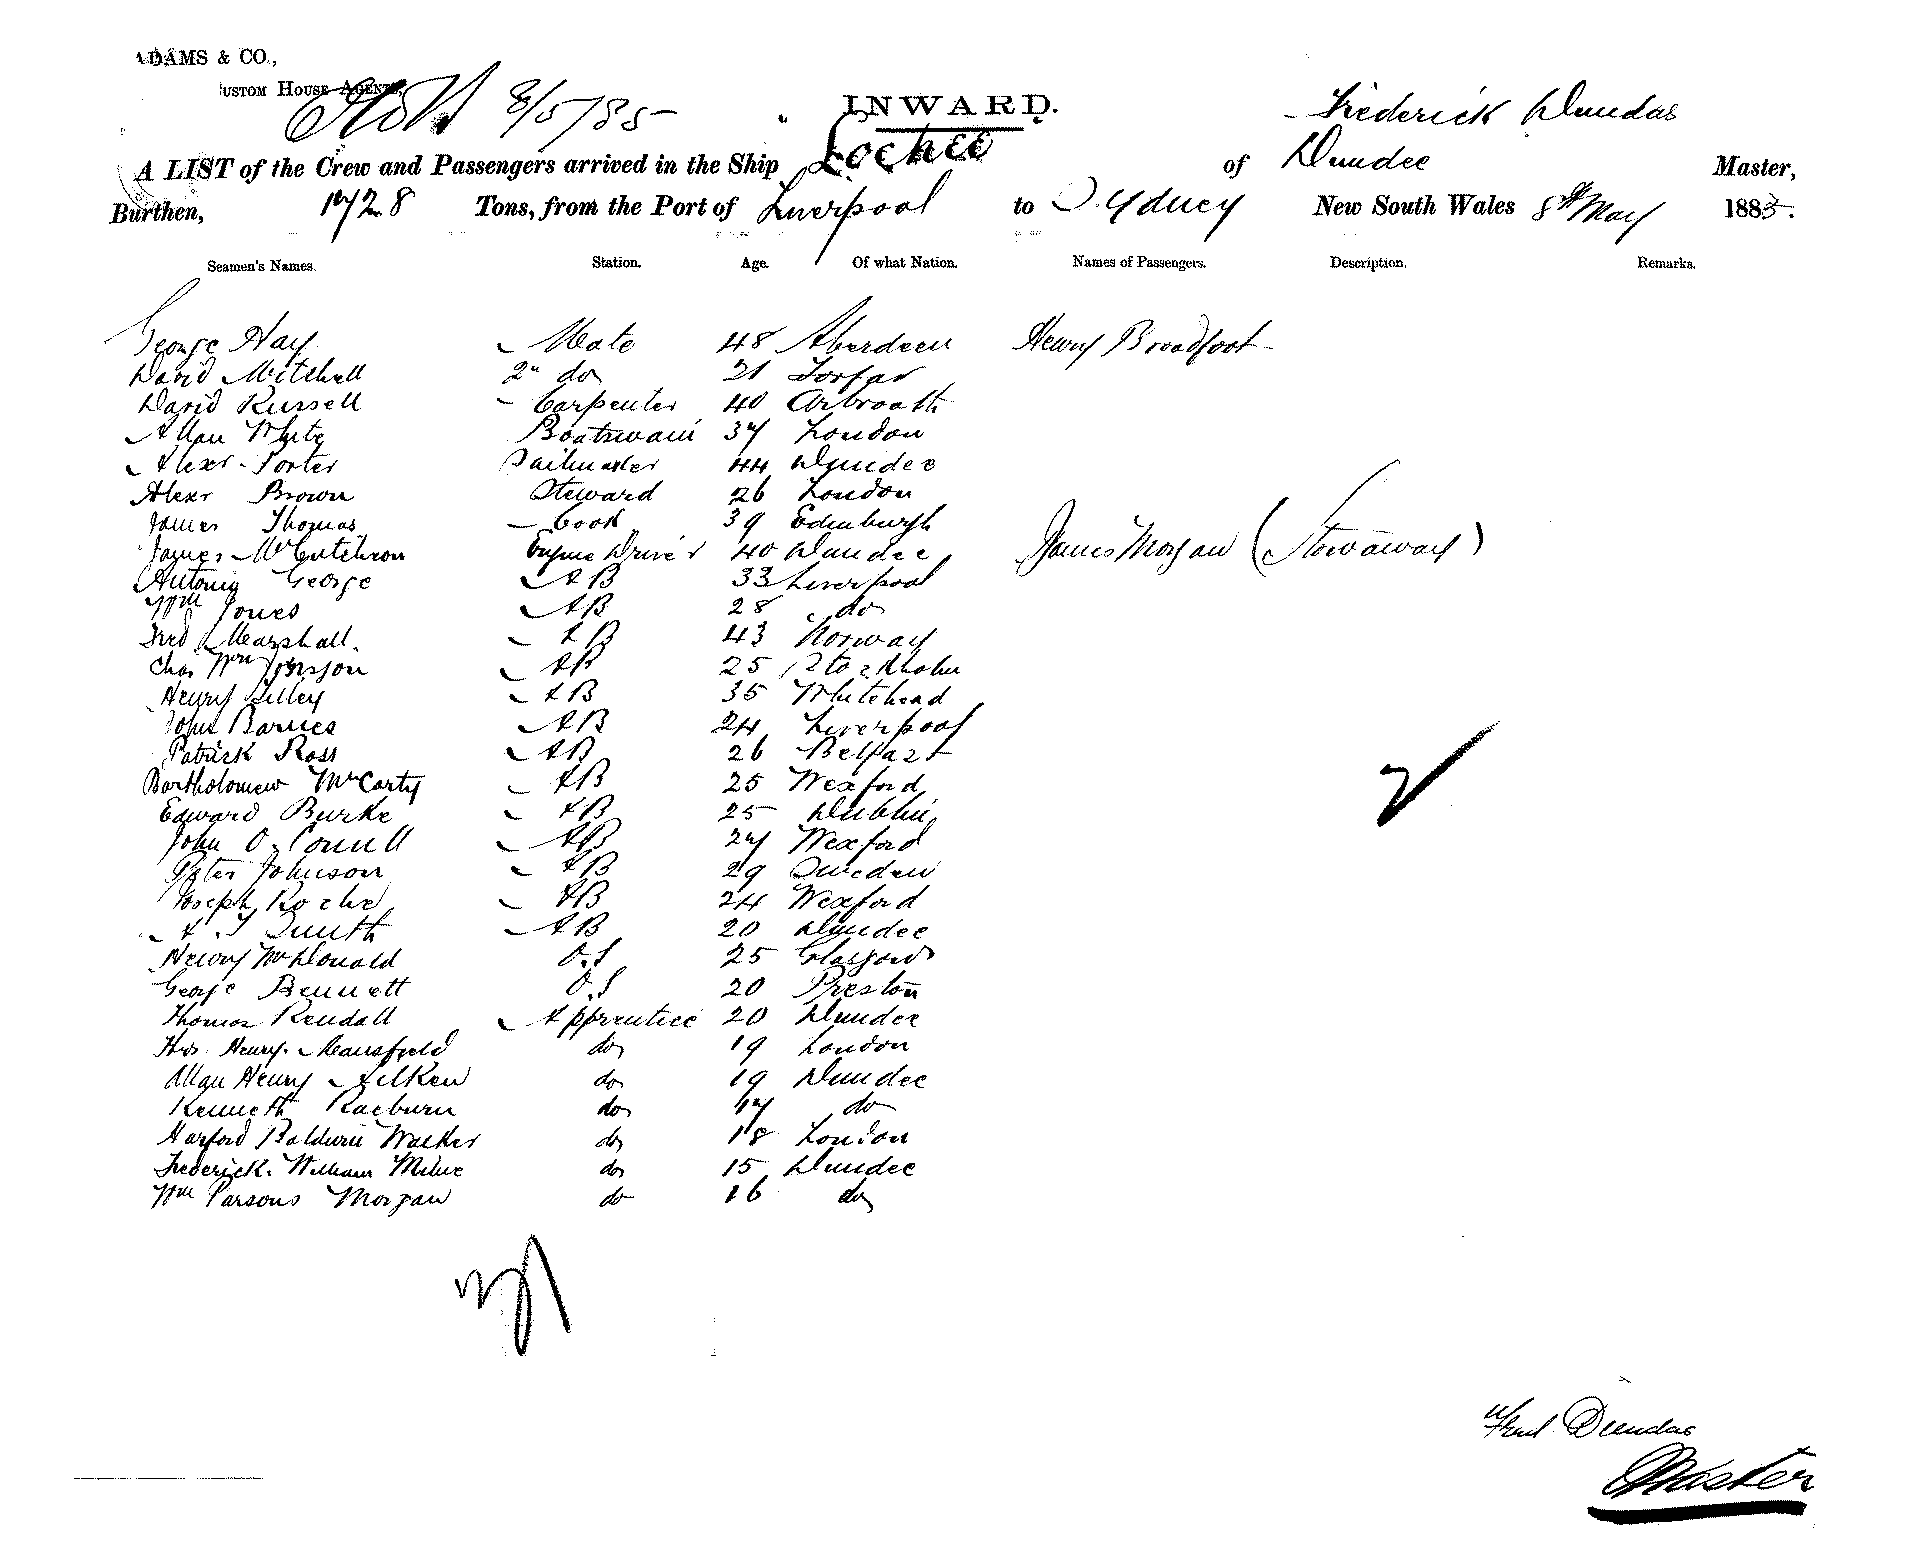 ADAMS & CO.,
USTOM HOUSE AGENTS,
8/5/85
INWARD.
Frederick Dundas
A LIST of the Crew and Passengers arrived in the Ship Lochee of Dundee Master,
Burthen, 1728 Tons, from the Port of Liverpool to Sydney New South Wales 8th May 1885.
Seamen's Names. Station. Age. Of what Nation. Names of Passengers. Description. Remarks.
George Hay Mate 48 Aberdeen Henry Broadfoot
David Mitchell 2" do 21 Forfar
David Russell Carpenter 40 Arbroath
Allan White Boatswain 37 London
Alexr. Porter Sailmaker 44 Dundee
Alexr Brown Steward 26 London
James Thomas Cook 39 Edinburgh
James McCutcheon Engine Driver 40 Dundee James Morgan (Stowaway)
Antonio George AB 33 Liverpool
Wm Jones AB 28 do
Fred Marshall. AB 43 Norway
Chas Wm Jonsson AB 25 Stockholm
Henry Lilley AB 35 Whitehead
John Barnes AB 24 Liverpool
Patrick Ross AB 26 Belfast
Bartholomew McCarty AB 25 Wexford
Edward Burke AB 25 Dublin
John O. Connell AB 27 Wexford
Peter Johnson AB 29 Sweden
Joseph Roche AB 24 Wexford
A. J Smith AB 20 Dundee
Henry McDonald O.S 25 Glasgow
George Bennett O.S 20 Preston
Thomas Rendall Apprentice 20 Dundee
Thos. Henry. Mansfield do 19 London
Allan Henry Aitken do 19 Dundee
Kenneth Raeburn do 17 do
Harford Baldwin Walker do 18 London
Frederick. William Milne do 15 Dundee
Wm Parsons Morgan do 16 do
Fred Dundas
Master